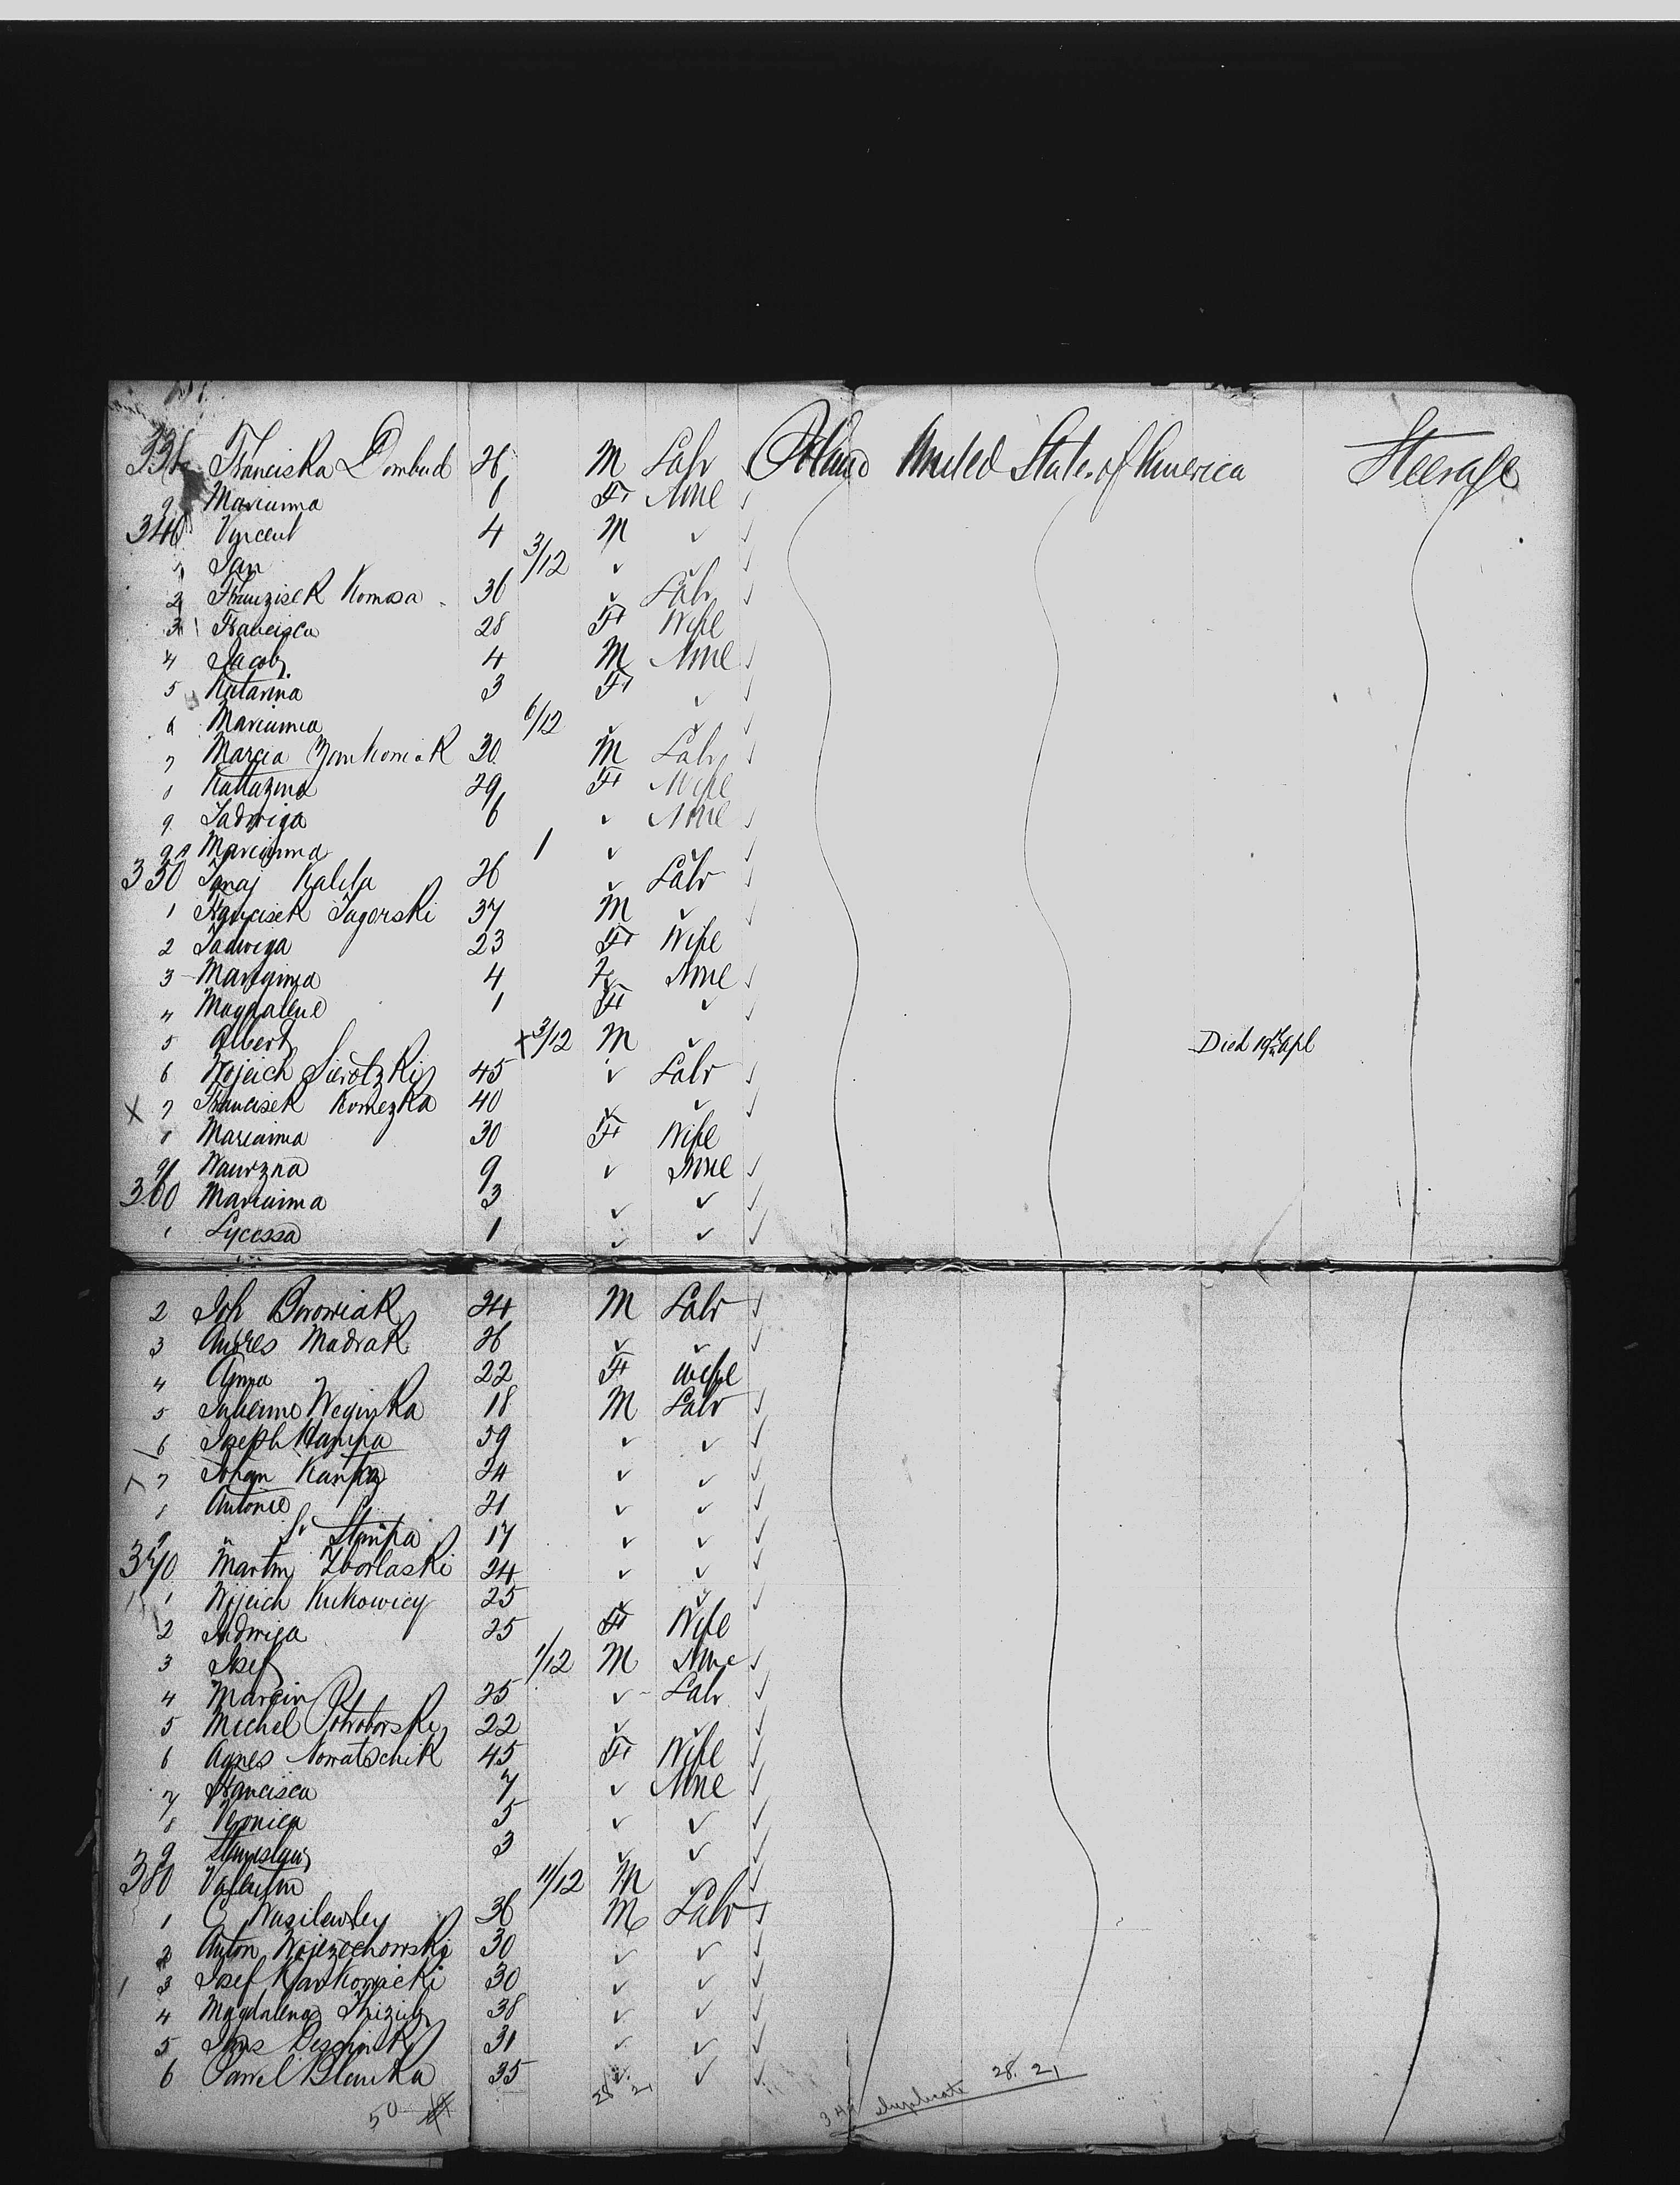 338 Franciska Dombud 26 M Labr Poland United States of America Steerage
9 Marianna 6 F None
340 Vincent 4 M ✓
1 Jan 3/12 ✓ ✓
2 Franzisek Komosa 36 ✓ Labr
3 Francisca 28 F Wife
4 Jacob 4 M None
5 Katarina 3 F ✓
6 Marianna 6/12 ✓ ✓
7 Marcia 30 M Labr
8 Kattazina 29 F Wife
9 Jadwiga 6 ✓ None
9a Marianna 1 ✓ ✓
350 Ignaj Kalela 26 ✓ Labr
1 Francisek Jagorski 37 M ✓
2 Jadwiga 23 F Wife
3 Marianna 4 F None
4 Magdalene 1 F ✓
5 Albert 3/12 M ✓ Died 19th Apl
6 Wojeich Sierotzki 45 ✓ Labr
X 7 Francisek Komezka 40 ✓ ✓
8 Marianna 30 F Wife
9 Wawrzna 9 ✓ None
360 Marianna 3 ✓ ✓
1 Lycossa 1 ✓ ✓
2 Joh Borowiak 24 M Labr
3 Andres Madrak 26 ✓ ✓
4 Anna 22 F Wife
5 18 M Labr
6 Joseph 39 ✓ ✓
7 Johan 24 ✓ ✓
8 Antonie 21 ✓ ✓
9 Stampa 17 ✓ ✓
370 Martin Zborlaski 24 ✓ ✓
1 Wojeich Kukowicy 25 ✓ ✓
2 Jadwiga 25 F Wife
3 Josef 1/12 M None
4 Marcin 25 ✓ Labr
5 Michel 22 ✓ ✓
6 Agnes Nowatschik 45 F Wife
7 Francisca 7 ✓ None
8 Veronica 5 ✓ ✓
9 Stanislaus 3 ✓ ✓
380 Valentin 11/12 M ✓
1 C Wasilewsky 36 M Labr
2 Anton Wojezechowski 30 ✓ ✓
3 Josef 30 ✓ ✓
4 Magdalena 38 ✓ ✓
5 31 ✓ ✓
6 Pawel Blanka 35 ✓ ✓
50 28 21 349 duplicate 28. 21